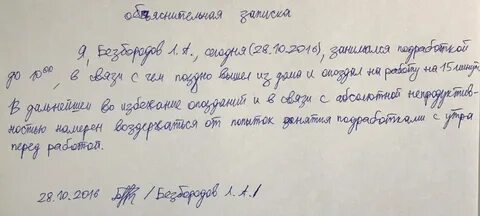 объяснительная записка
Я, Безбородов Л.А., сегодня (28.10.2016), занимался подработкой
до 10⁰⁰, в связи с чем поздно вышел из дома и опоздал на работу на 15 минут.
В дальнейшем во избежание опозданий и в связи с абсолютной непродуктив-
ностью намерен воздержаться от попыток занятия подработками с утра
перед работой.
28.10.2016 /Безбородов Л.А./